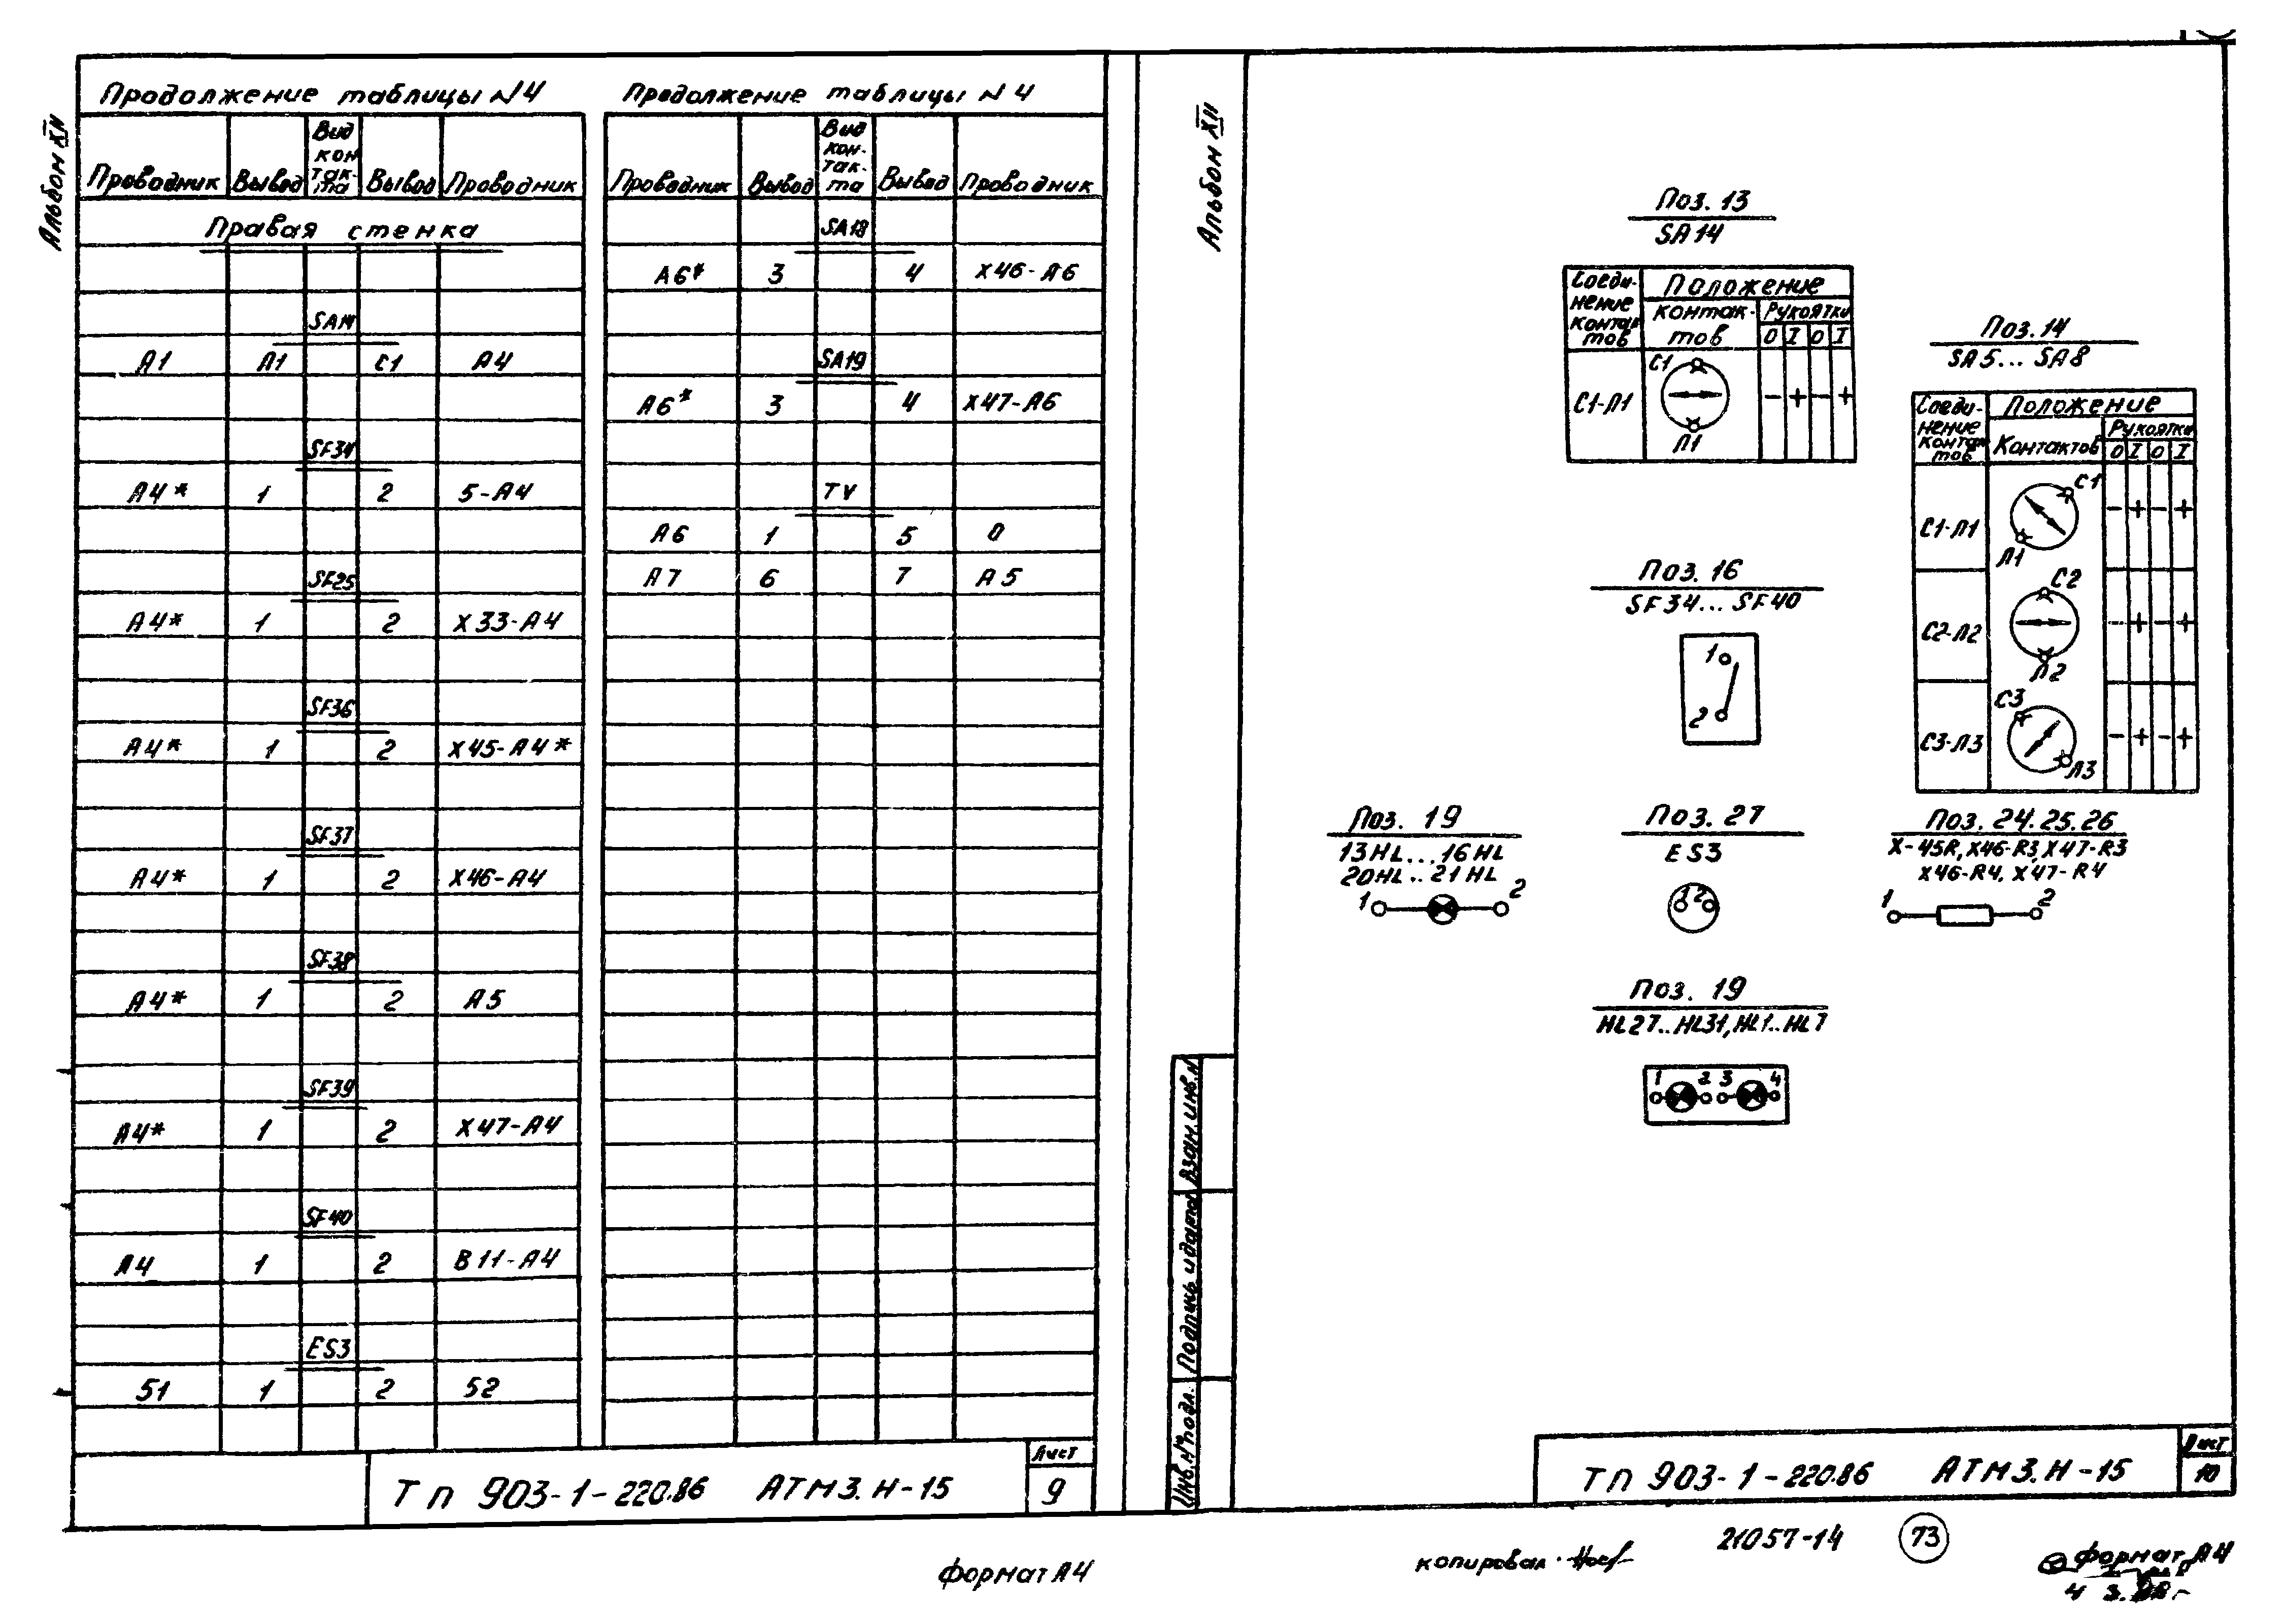 Альбом XII
Продолжение таблицы N4
Проводник Вывод Вид контакта Вывод Проводник
Правая стенка
SA14
A1 Л1 С1 A4
SF34
A4* 1 2 5-A4
SF25
A4* 1 2 X33-A4
SF36
A4* 1 2 X45-A4*
SF37
A4* 1 2 X46-A4
SF38
A4* 1 2 A5
SF39
A4* 1 2 X47-A4
SF40
A4 1 2 B11-A4
ES3
51 1 2 52
Продолжение таблицы N4
Проводник Вывод Вид кон-так-та Вывод Проводник
SA18
A6* 3 4 X46-A6
SA19
A6* 3 4 X47-A6
TV
A6 1 5 0
A7 6 7 A5
ТП 903-1-220.86 АТМ3.Н-15
Лист
9
формат А4
Альбом XII
Поз. 13
SA14
Соединение контактов
Положение
контак-тов
Рукоятки
0 I 0 I
С1-Л1
С1
Л1
- + - +
Поз. 14
SA5... SA8
Соеди-нение контактов
Положение
Контактов
Рукоятки
0 I 0 I
С1-Л1
С1
Л1
- + - +
С2-Л2
С2
Л2
- + - +
С3-Л3
С3
Л3
- + - +
Поз. 16
SF34... SF40
1
2
Поз. 19
13HL...16HL
20HL..21HL
1 2
Поз. 27
ES3
1 2
Поз. 24.25.26
X-45R, X46-R3, X47-R3
X46-R4, X47-R4
1 2
Поз. 19
HL27..HL31, HL1..HL7
1 2 3 4
Взам. инв. N
Подпись и дата
Инв. N подл.
ТП 903-1-220.86 АТМ3.Н-15
Лист
10
копировал
21057-14
73
формат А4